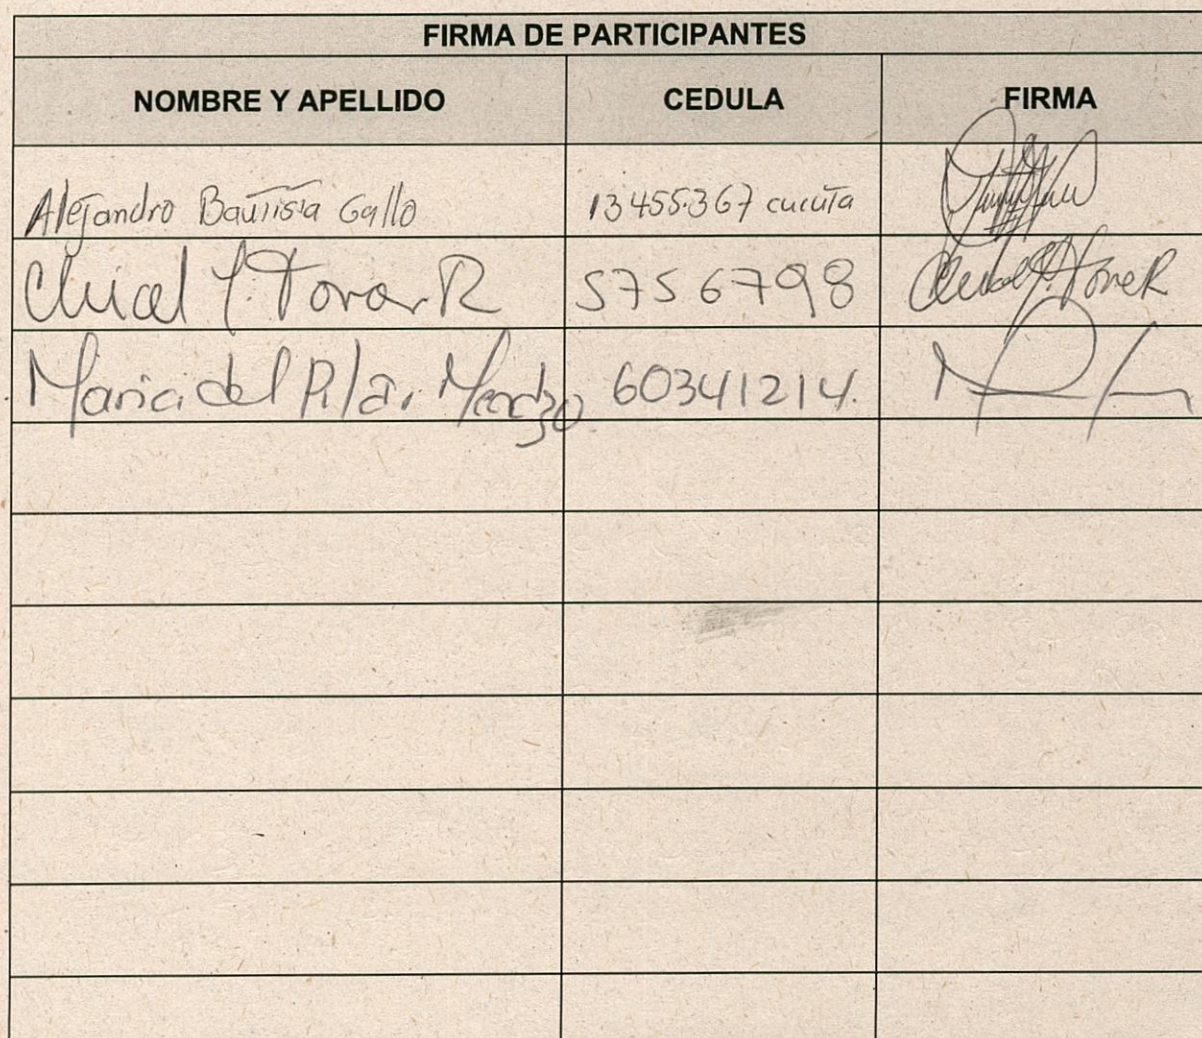 FIRMA DE PARTICIPANTES
NOMBRE Y APELLIDO CEDULA FIRMA
Alejandro Bautista Gallo 13455.367 cucuta
Tovar R 5756798
Maria del Pilar 60341214.